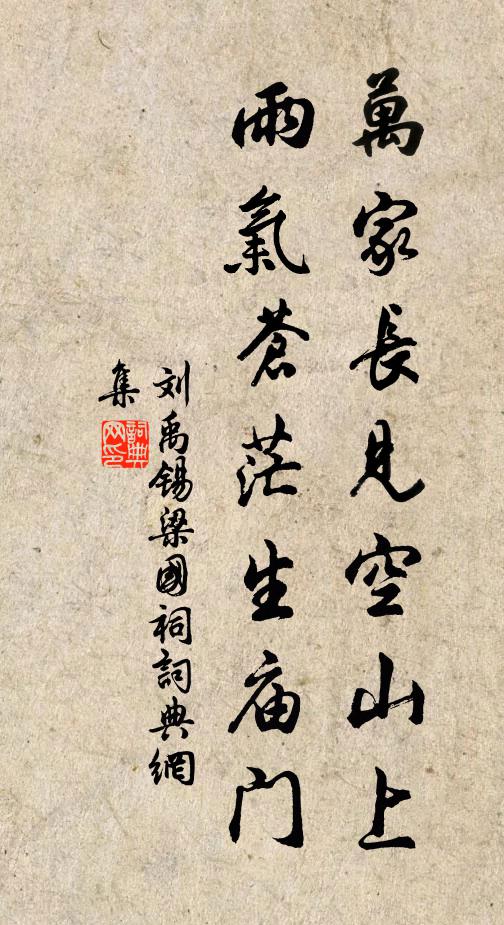 萬家長見空山上
雨氣蒼茫生庙门
刘禹锡梁國祠詞典網
集
詞典
网印